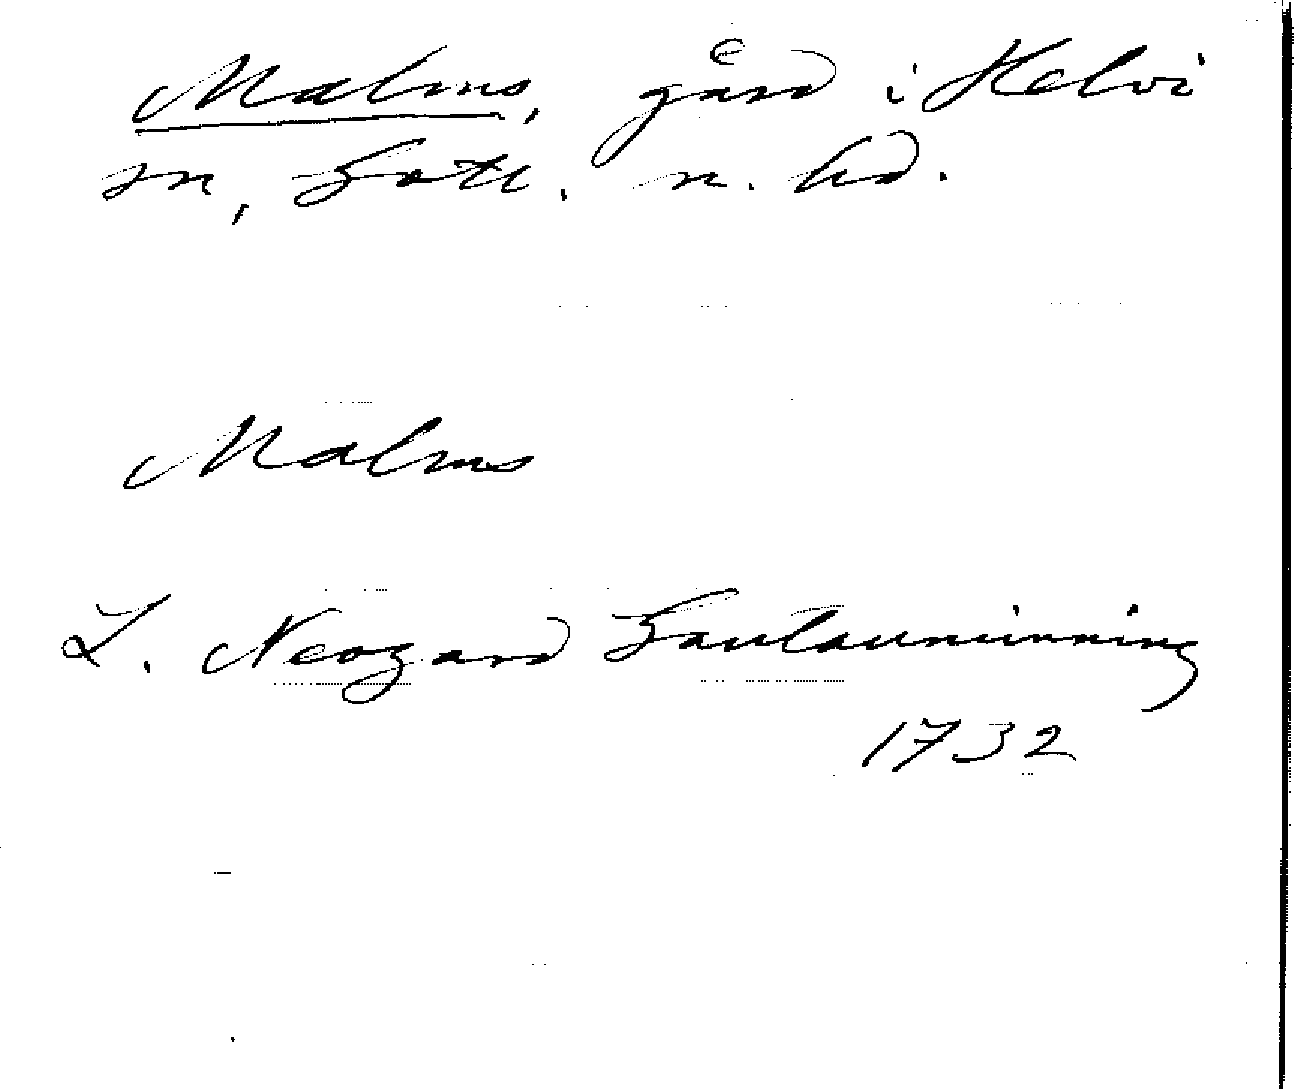 Malms, gård i Helvi
sn, Gotl. n. hd.
Malms
L. Neogard Gaulauminning
1732